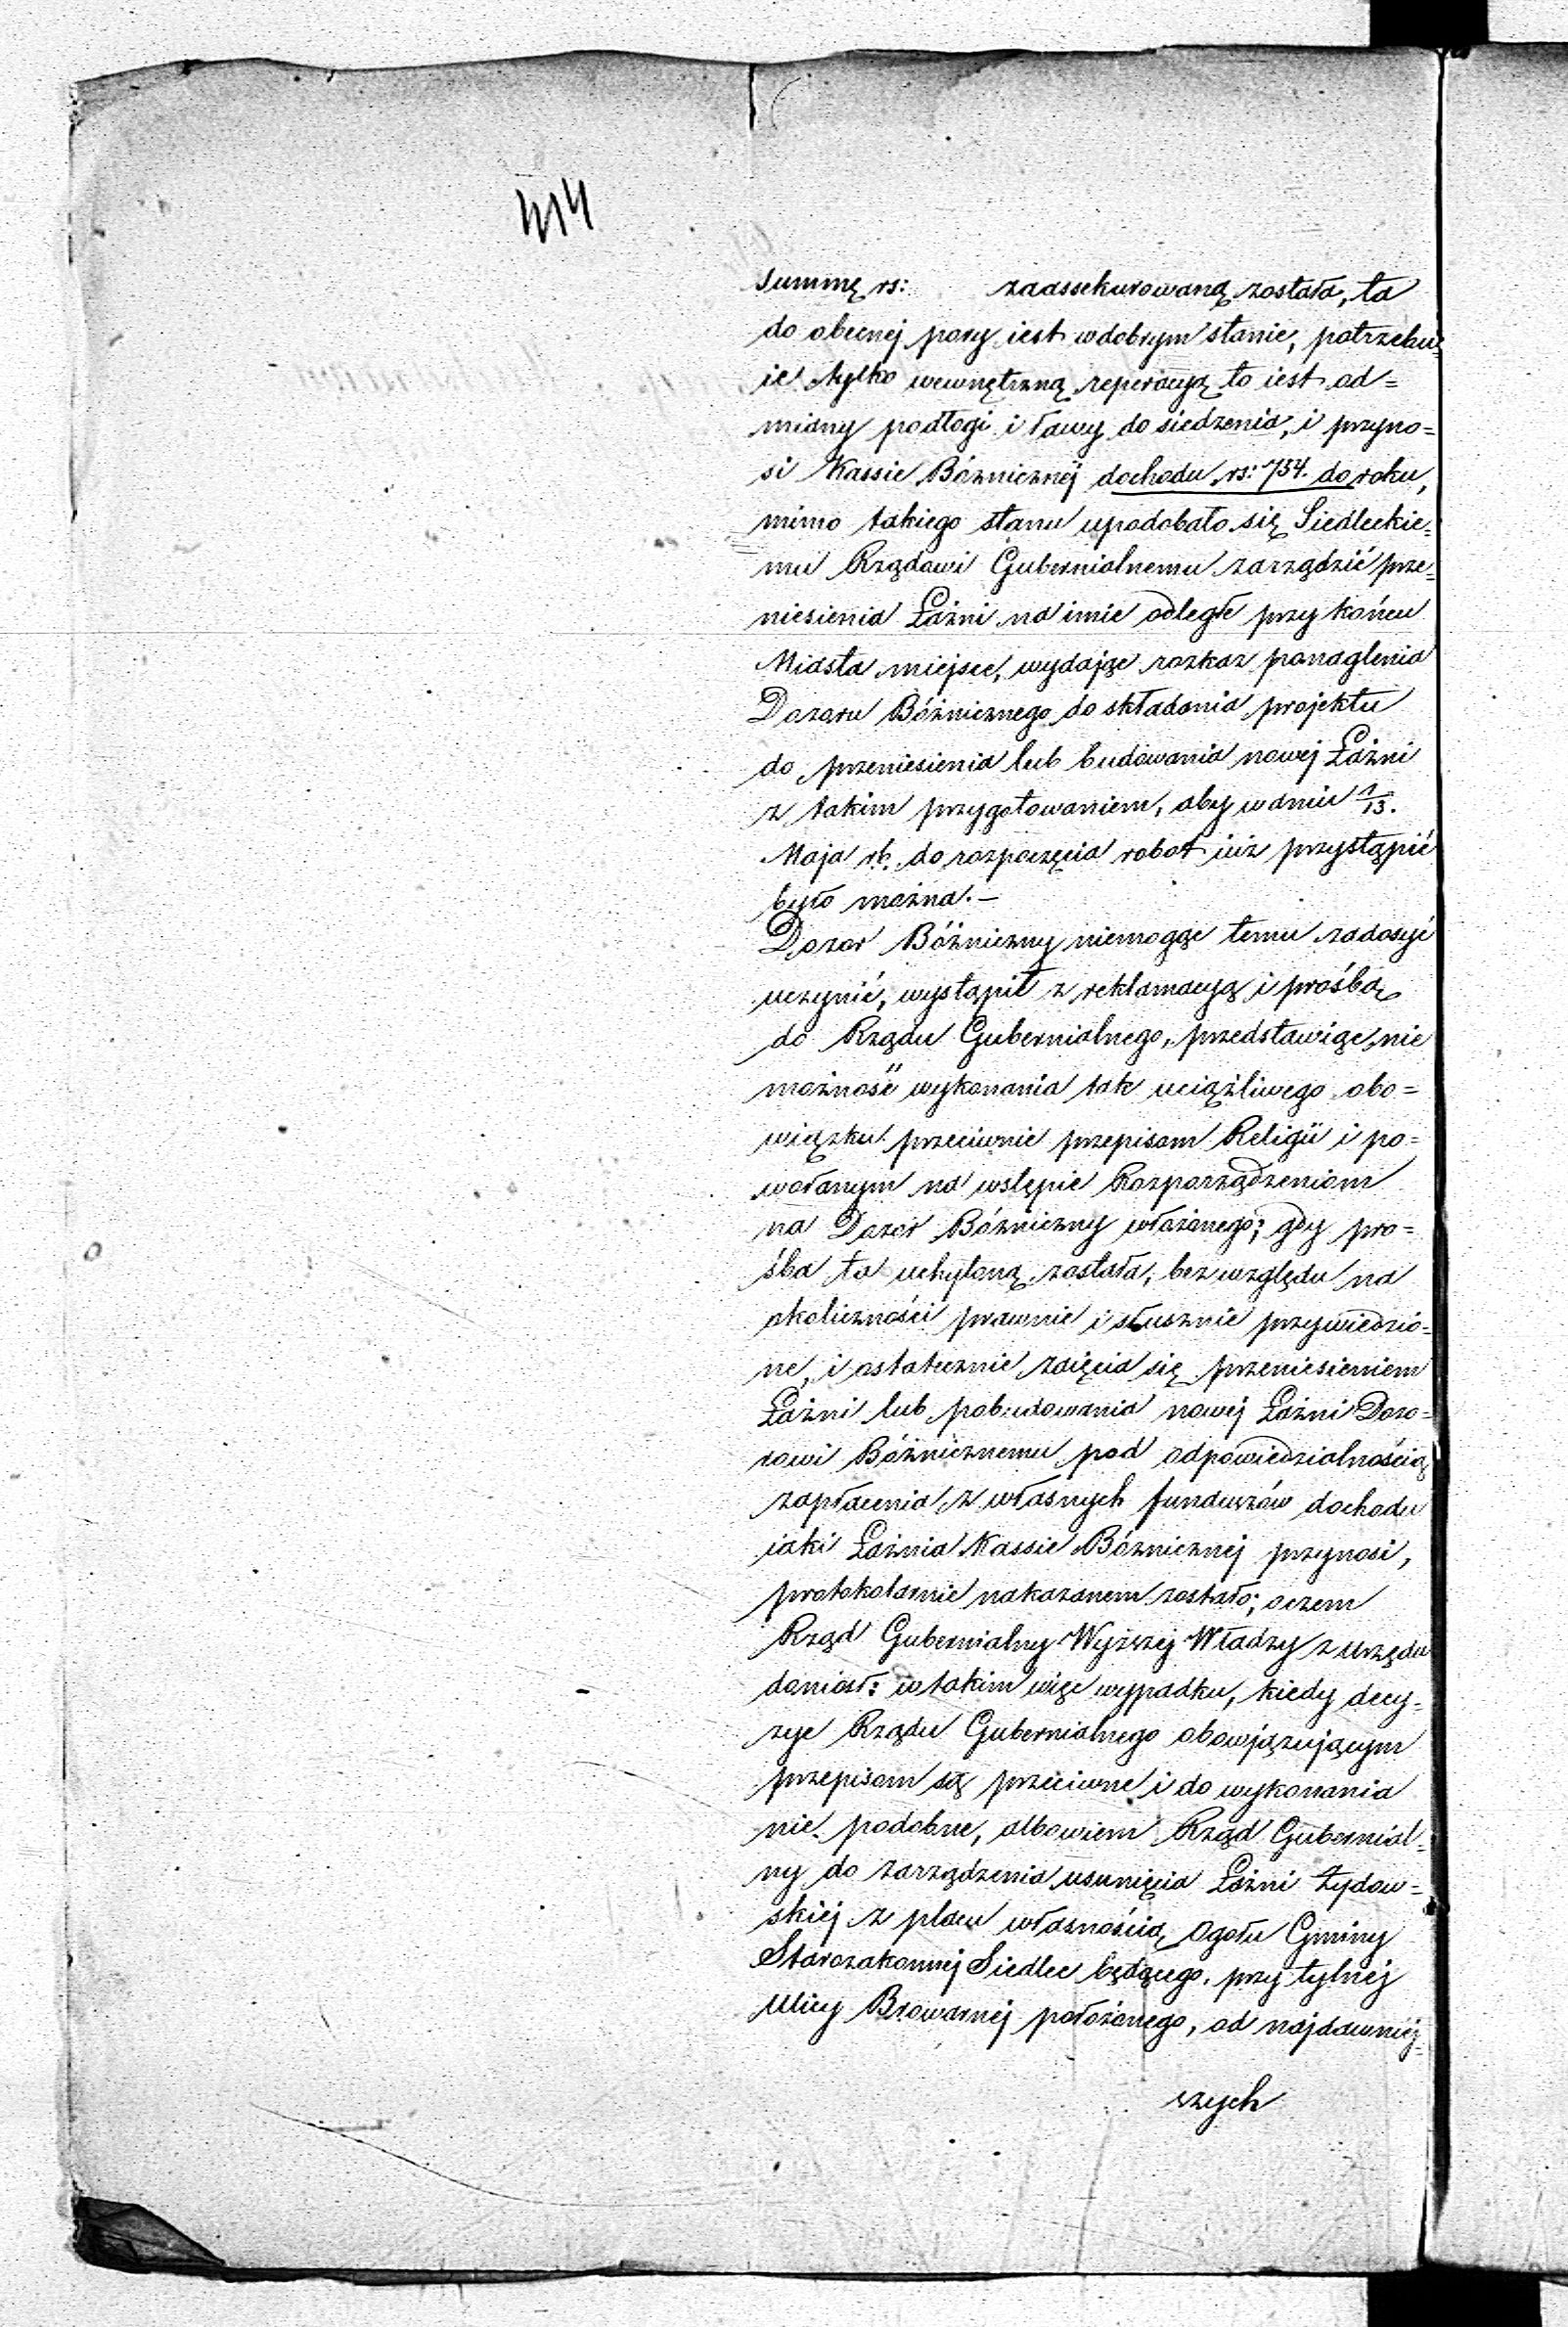 414
summę rs: zaassekurowaną została, ta
do obecnej pory iest w dobrym stanie, potrzebu=
ie tylko wewnętrzną reperacyą to iest od=
miany podłogi i ławy do siedzenia, i przyno=
si Kassie Bóżnicznéj dochodu rs: 754. do roku,
mimo takiego stanu upodobało się Siedleckie=
mu Rządowi Gubernialnemu zarządzić prze=
niesienia Łaźni na imie odległe przy końcu
Miasta miejsce, wydając rozkaz ponaglenia
Dozoru Bóżnicznego do składania projektu
do przeniesienia lub budowania nowej Łaźni
z takim przygotowaniem, aby w dniu 1/13.
Maja rb. do rozpoczęcia robot iuż przystąpić
było można.—
Dozor Bóżniczny niemogąc temu zadosyć
uczynić, wystąpił z reklamacyą i prośbą
do Rządu Gubernialnego, przedstawiąc nie
możność wykonania tak uciążliwego obo=
wiązku przeciwnie przepisom Religii i po=
wołanym na wstępie Rozporządzeniom
na Dozór Bóżniczny włożonego; gdy pro=
śba ta uchyloną została, bez względu na
okoliczności prawnie i słusznie przywiedzio=
ne, i ostatecznie zaięcia się przeniesieniem
Łaźni lub pobudowania nowej Łaźni Dozo=
rowi Bóżnicznemu pod odpowiedzialnością
zapłacenia z własnych funduszów dochodu
iaki Łaźnia Kassie Bóżnicznej przynosi,
protokolarnie nakazanem zostało; oczem
Rząd Gubernialny Wyższej Władzy z urzędu
doniosł: w takim więc wypadku, kiedy decy=
zye Rządu Gubernialnego obowjązującym
przepisom są przeciwne i do wykonania
nie podobne, albowiem Rząd Gubernial=
ny do zarządzenia usunięcia Łaźni Żydow=
skiej z placu własnością Ogołu Gminy
Starozakonnej Siedlec będącego, przy tylnej
Ulicy Browarnej położonego, od najdawniej=
szych